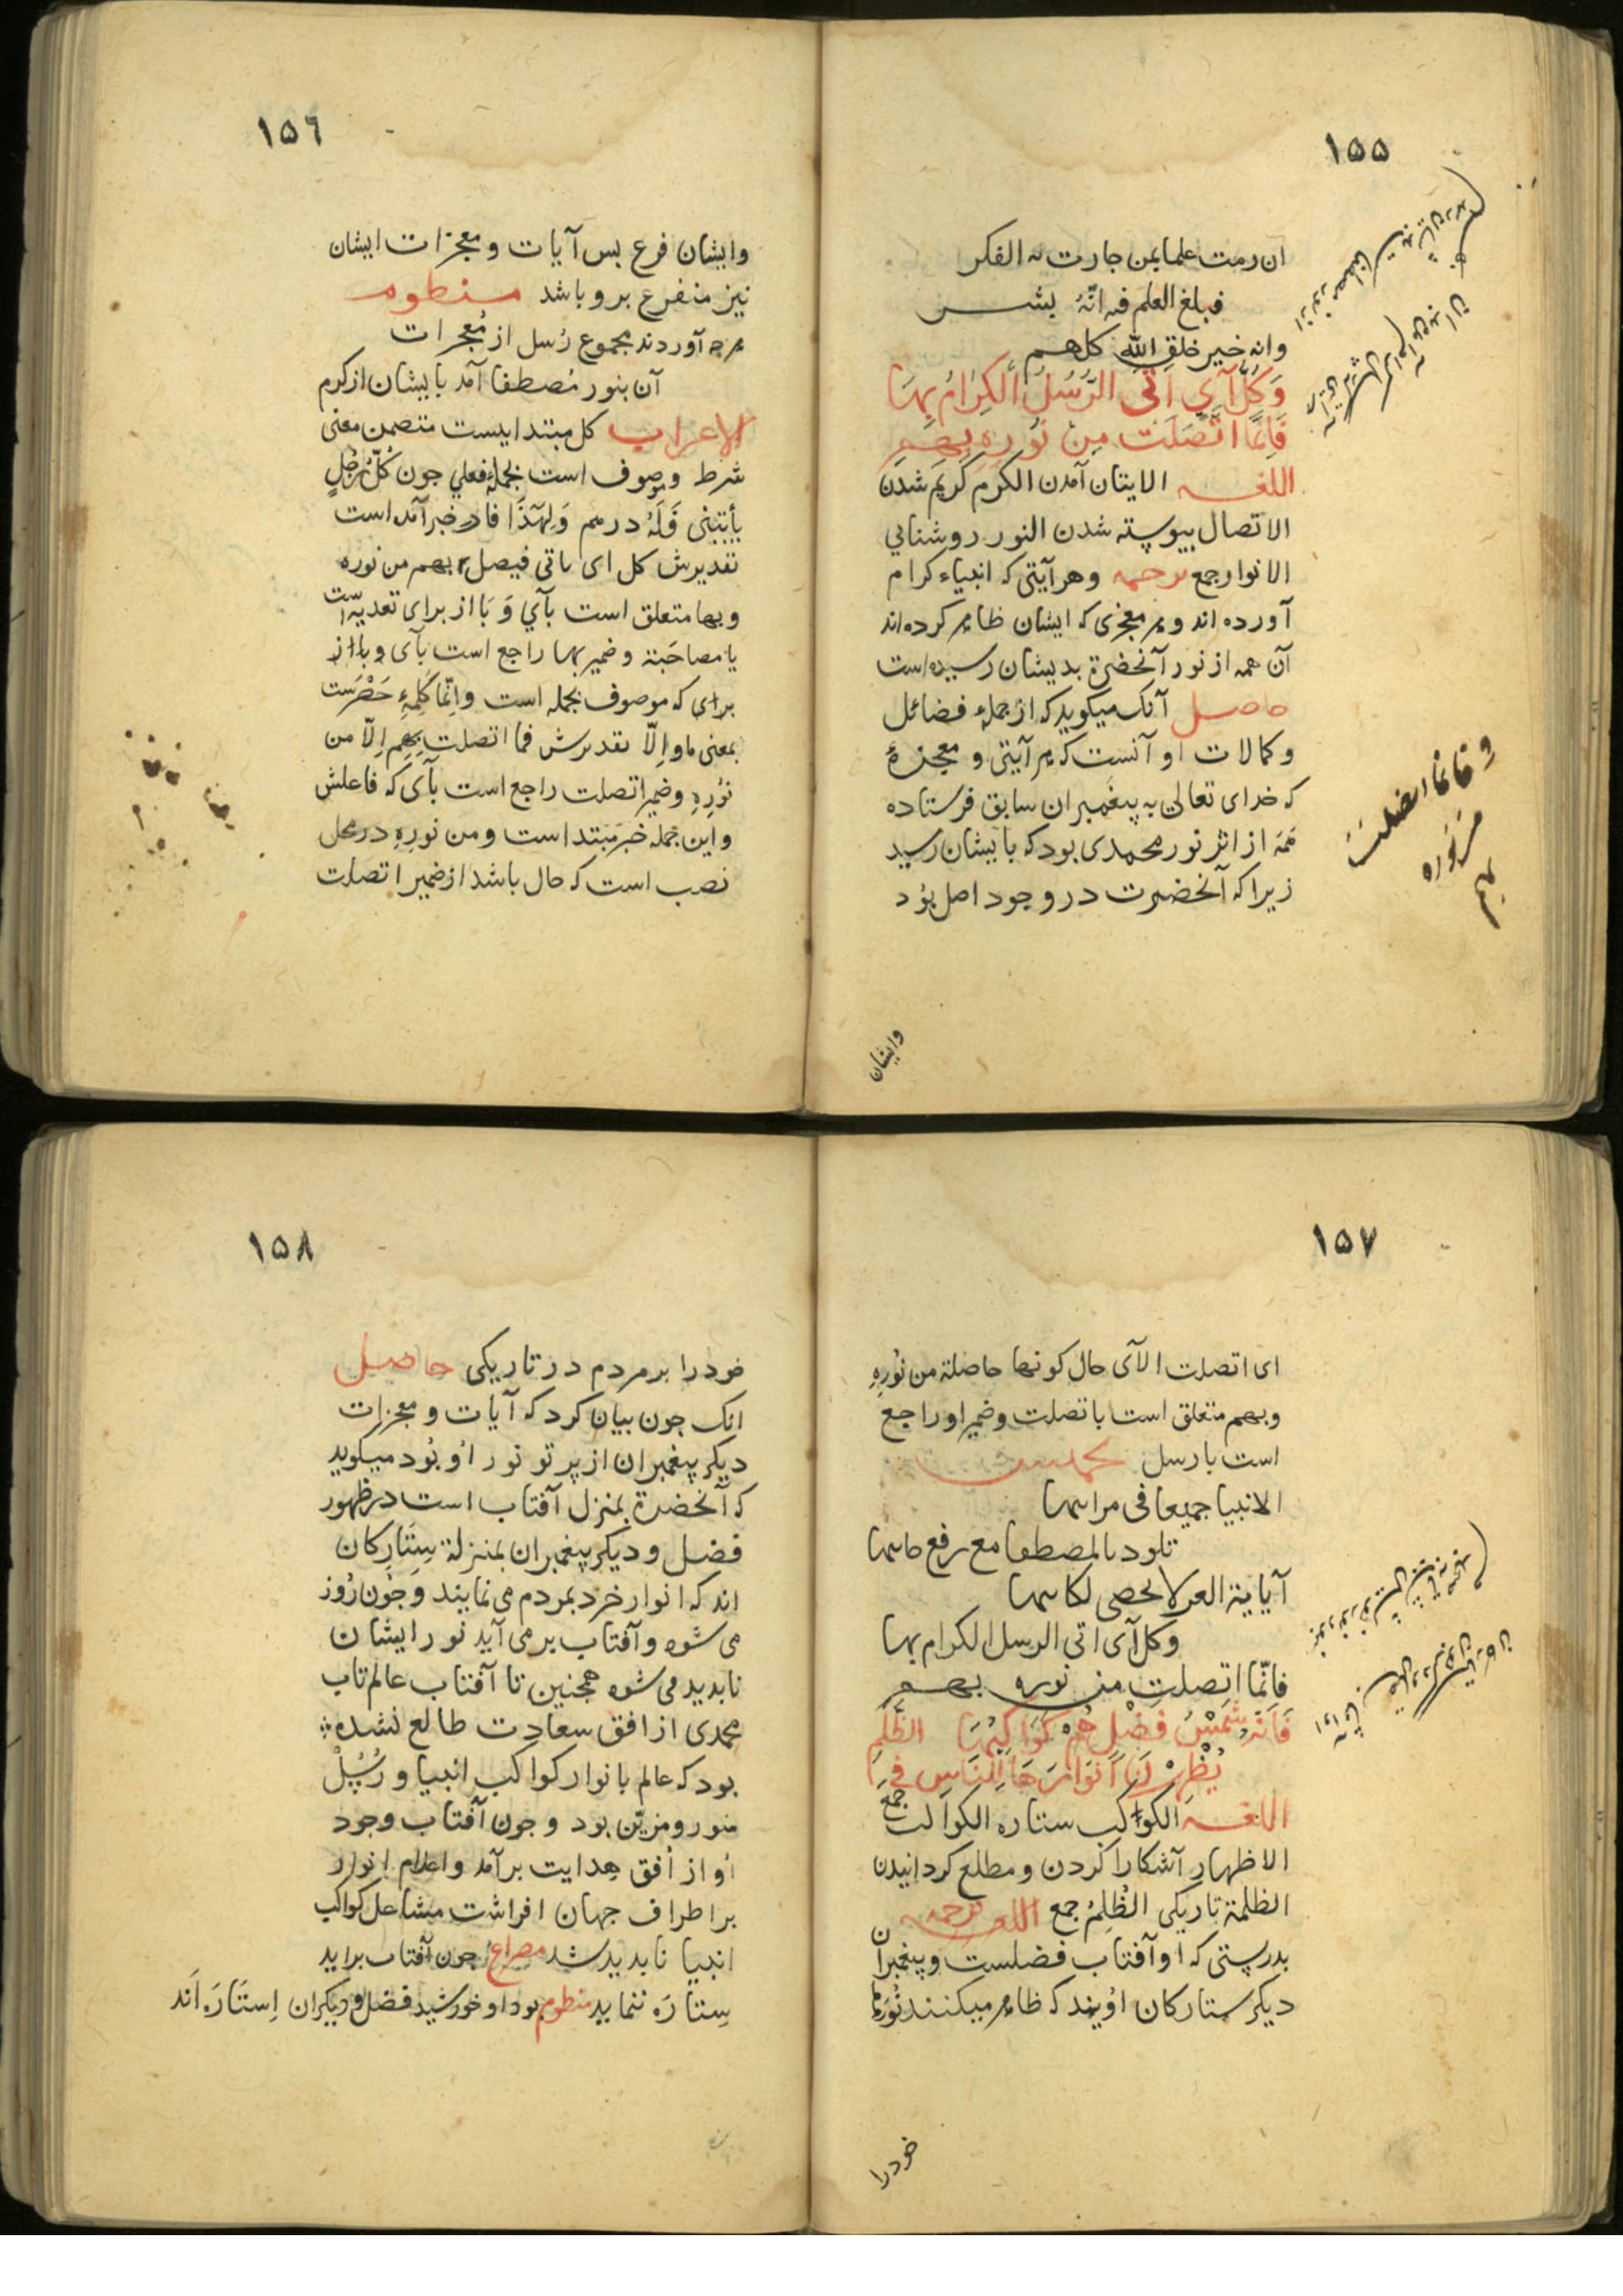 ١٥٥
ان رمت علما بمن جارت له الفكر
فبلغ العلم فيه انّهُ بشر
وانه خير خلق الله كلهم
وَكُلُّ آيٍ اَتَى الرُّسُلُ الْكِرَامُ بِهَا
فَاِنَّمَا اتَّصَلَتْ مِنْ نُورِهِ بِهِمِ
اللغه الايتان آمدن الكرم كريم شدن
الاتصال بيوسته شدن النور روشنايي
الانوار جمع ترجمه وهر آيتى كه انبياء كرام
آورده اند وهر معجزى كه ايشان ظاهر كرده اند
آن همه از نور آنحضرة بديشان رسيده است
حاصل آنك ميكويد كه از جملهء فضائل
وكمالات او آنست كه هر آيتى و معجزهٔ
كه خداى تعالى به پيغمبران سابق فرستاده
همه از اثر نور محمدى بود كه بايشان رسيد
زيرا كه آنحضرت در وجود اصل بود
فانما اتصلت
من نوره
بهم
وايشان
١٥٦
وايشان فرع بس آيات و معجزات ايشان
نيز متفرع برو باشد منظوم
هرچه آوردند مجموع رُسل از مُعجزات
آن بنور مُصطفا آمد بايشان از كرم
الاعراب كل مبتدا ايست متضمن معنى
شرط وموصوف است بجملهٔ فعلي جون كُلُّ رَجُلٍ
يأتينى فَلَهُ درهم وَلِهَذَا فا در خبر آمده است
تقديرش كل اى ياتى فيصل بهم من نوره
وبها متعلق است بآيٍ وَ بَا از براى تعديّه است
يا مصاحَبة و ضمير بها راجع است بآى و با از
براى كه موصوف بجمله است وانّما كَلِمَهءِ حَصْرَست
بمعنى ما و اِلّا تقديرش فما اتصلت بِهِم اِلّا من
نُورِهِ وضمير اتصلت راجع است بآى كه فاعلش
واين جمله خبر مبتدا است ومن نورِهِ در محل
نصب است كه حال باشد از ضمير اتصلت
١٥٧
اى اتصلت الآى حال كونها حاصلة من نُورِهِ
وبهم متعلق است باتصلت وضمير او راجع
است بارسل تخميس
الانبيا جميعا فى مراتبها
تلوذ بالمصطفا مع رفع جانبها
آياته الغر لا يحصى لكاتبها
وكل آى اتى الرسل الكرام بها
فانّما اتصلت من نوره بهم
فَاِنَّهُ شَمْسُ فَضْلٍ هُمْ كَوَاكِبُهَا الظُّلَمِ
يُظْهِرْنَ اَنْوَارَهَا لِلنَّاسِ فِى
اللغه الكواكب ستاره الكوالب جمع
الاظهار آشكارا كردن و مطلع كردانيدن
الظلمة تاريكى الظُلَمُ جمع اللغه ترجمه
بدرستى كه او آفتاب فضلست و پيغمبران
ديكر ستاركان اويند كه ظاهر ميكنند نُورها
خودرا
١٥٨
خودرا بر مردم در تاريكى حاصل
انك جون بيان كرد كه آيات و معجزات
ديكر پيغمبران از پرتو نور اُو بُود ميكويد
كه آنحضرة بمنزل آفتاب است در ظهور
فضل و ديكر پيغمبران بمنزلة سِتَارِكان
اند كه انوار خرد بمردم مى نمايند و جُون رُوز
مى شود و آفتاب بر مى آيد نور ايشان
نابديد مى شود همجنين تا آفتاب عالم تاب
محمدى از افق سعادت طالع نشده
بود كه عالم بانوار كواكب انبيا و رُسُل
منور و مزيّن بود و جون آفتاب وجود
اُو از اُفق هدايت برآمد واعلام انوار
بر اطراف جهان افراشت مشاعل كواكب
انبيا نابديد شد مصراع جون آفتاب برايد
سِتارَه ننمايد منظوم بود او خورشيد فضل و ديكران اِستَارَه اند